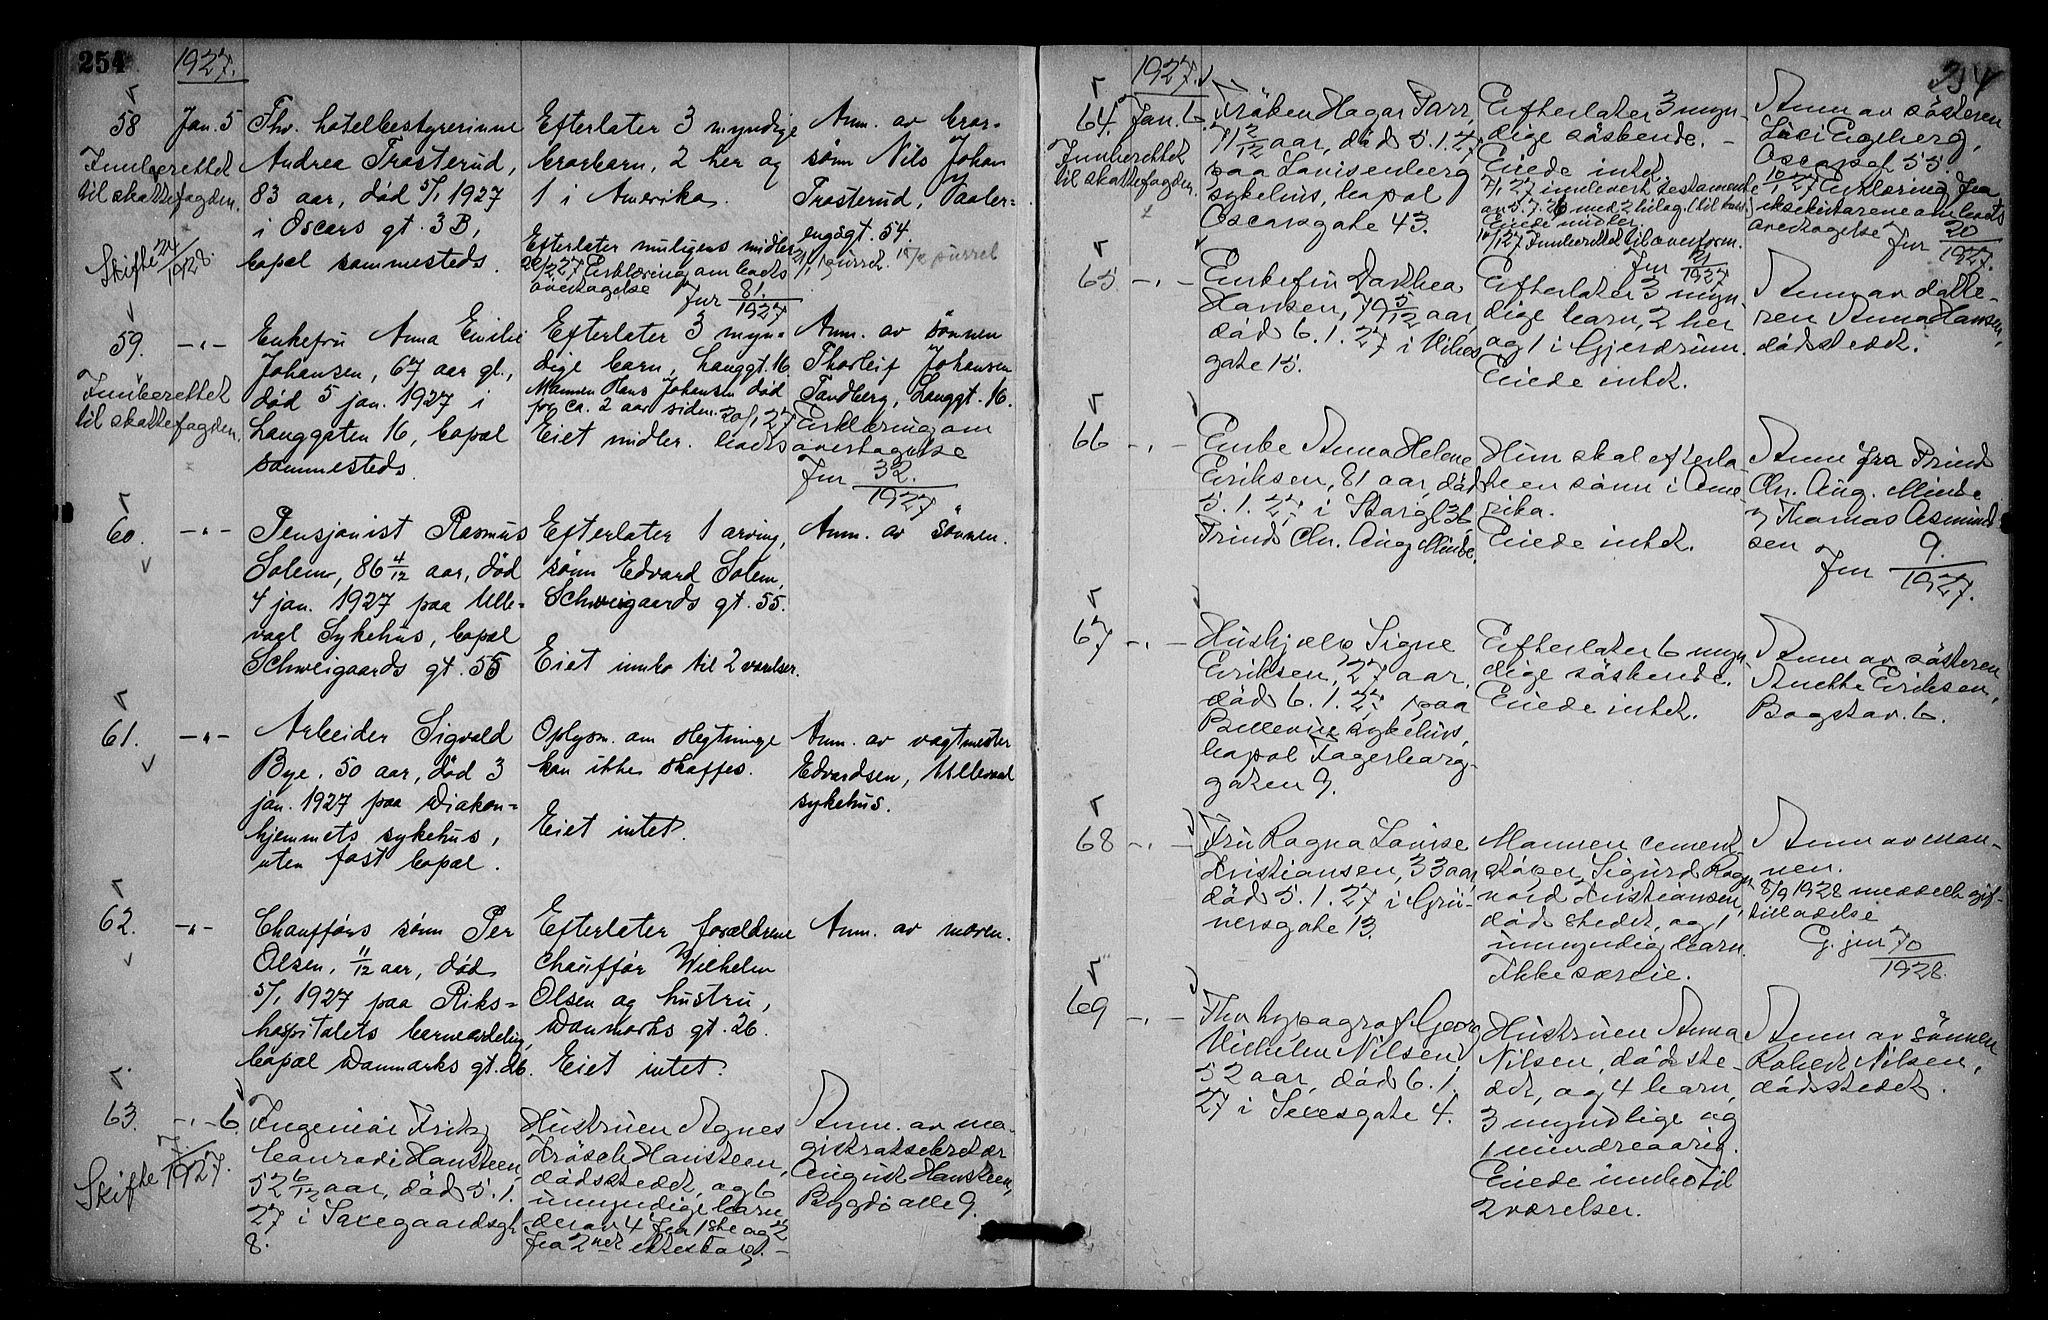 254
1927.
58
Jan. 5
Innberettet
til skattefogden.
Skifte 24/1928.
Fhv. hotelbestyrerinne
Andrea Trosterud,
83 aar, død 5/1 1927
i Oscars gt. 3B,
bopæl sammesteds.
Efterlater 3 myndige
brorbarn, 2 her og
1 i Amerika.
Efterlater muligens midler
22/2 27 Erklæring om boets
overtagelse Jnr 81./1927
Anm. av bror-
sønn Nils Johan
Trosterud, Vaaler-
engagt. 54
purret. purret
59.
-"-
Innberettet
til skattefogden.
Enkefru Anna Emilie
Johansen, 67 aar gl.,
død 5 jan. 1927 i
Langgaten 16, bopæl
sammesteds.
Efterlater 3 myn-
dige barn, Langgt. 16
Mannen Hans Johansen død
for ca. 2 aar siden.
Eiet midler.
Anm. av sønnen
Thorleif Johansen
Tandberg, Langgt. 16.
20/1 27 Erklæring om
boets overtagelse
Jnr 32./1927
60.
-"-
Pensjonist Rasmus
Solem, 86 4/12 aar, død
4 jan. 1927 paa Ulle-
vaal Sykehus, bopæl
Schweigaards gt. 55
Efterlater 1 arving,
sønn Edvard Solem,
Schweigaards gt. 55.
Eiet innbo til 2 værelser.
Anm. av sønnen.
61.
-"-
Arbeider Sigvald
Bye, 50 aar, død 3
jan. 1927 paa Diakon-
hjemmets sykehus,
uten fast bopæl.
Oplysn. om slegtninge
kan ikke skaffes.
Eiet intet.
Anm. av vagtmester
Edvardsen, Ullevaal
sykehus.
62.
-"-
Chaufførs sønn Per
Olsen, 11/12 aar, død
5/1 1927 paa Riks-
hospitalets barneavdeling,
bopæl Danmarks gt. 26.
Efterlater forældrene
Chauffør Wilhelm
Olsen og hustru,
Danmarks gt. 26.
Eiet intet.
Anm. av moren.
63.
-"- 6.
Skifte 7./1927.
Ingeniør Fritz
Conradi Hansteen
52 6/12 aar, død 5. 1.
27 i Saxegaardsgt
8.
Hustruen Agnes
Krösch Hansteen,
dødsstedet, og 6
umyndige barn
derav 4 fra 1ste og 2
fra 2net ekteskap.
Anm. av ma-
gistratsekretær
August Hansteen,
Bygdø alle 9.
1927.
254
64.
Jan. 6.
Innberettet
til skattefogden.
Frøken Hagar Parr,
71 2/12 aar, død 5. 1. 27
paa Lovisenberg
sykehus, bopæl
Oscarsgate 43.
Efterlater 3 myn-
dige søskende.
Eiede intet.
7/1 27 innlevert testamente
av 5. 7. 26 med 2 bilag. (til [...])
Eiede midler
10/1 27 Innberettet til overform.
Jnr 21/1927
Anm av søsteren
Lovi Engberg,
Oscarsgt. 55
10/1 27 Erklæring fra
eksekutorene om boets
overtagelse Jnr 20/1927.
65
-"-
Enkefru Dorthea
Hansen, 79 5/12 aar,
død 6. 1. 27 i Vibes
gate 15.
Efterlater 3 myn-
dige barn, 2 her
og 1 i Gjerdrum.
Eiede intet.
Anm av datte-
ren Anna Hansen,
dødsstedet.
66
-"-
Enke Anna Helene
Eriksen, 81 aar, død
5. 1. 27 i Storgt 36
Prinds Chr. Aug. Minde.
Hun skal efterla-
te en sønn i Ame-
rika.
Eiede intet.
Anm fra Prinds
Chr. Aug. Minde
v Thomas Asmund-
sen
Jnr 9./1927.
67.
-"-
Hushjælp Signe
Eriksen, 27 aar,
død 6. 1. 27 paa
Bellevue sykehus,
bopæl Fagerborg-
gaten 9.
Efterlater 6 myn-
dige søskende.
Eiede intet.
Anm av søsteren
Anette Eriksen,
Bogstav. 6.
68
-"-
Fru Ragna Lovise
Kristiansen, 33 aar,
død 5. 1. 27 i Grü-
nersgate 13.
Mannen cement-
støper Sigurd Rag-
nvald Kristiansen,
dødsstedet, og 1
umyndig barn.
Ikke særeie.
Anm av man-
nen.
8/9 1928 meddelt gif-
tilladelse
G. jnr 70/1928.
69
-"-
Fhv typograf Georg
Vilhelm Nilsen,
52 aar, død 6. 1.
27 i Sexesgate 4.
Hustruen Anna
Nilsen, dødsste-
det, og 4 barn,
3 myndige og
1 mindreaarig.
Eiede innbo til
2 værelser.
Anm av sønnen
Robert Nilsen,
dødsstedet.